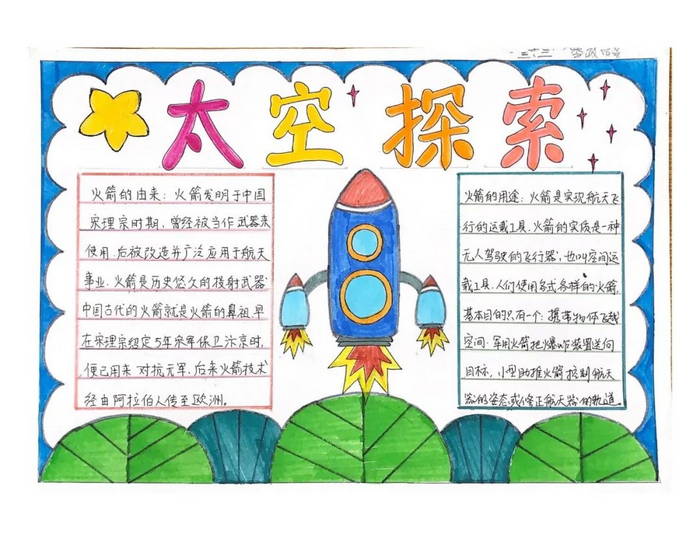 太空探索
火箭的由来：火箭发明于中国
宋理宗时期，曾经被当作武器来
使用，后被改造并广泛应用于航天
事业，火箭是历史悠久的投射武器
中国古代的火箭就是火箭的鼻祖，早
在宋理宗绍定5年宋军保卫汴京时，
便已用来对抗元军，后来火箭技术
经由阿拉伯人传至欧洲。
火箭的用途：火箭是实现航天飞
行的运载工具，火箭的实质是一种
无人驾驶的飞行器，也叫空间运
载工具，人们使用各式各样的火箭，
基本目的只有一个：携带物体飞越
空间：军用火箭把爆炸装置送向
目标，小型助推火箭控制航天
器的姿态，或修正航天器的轨道。